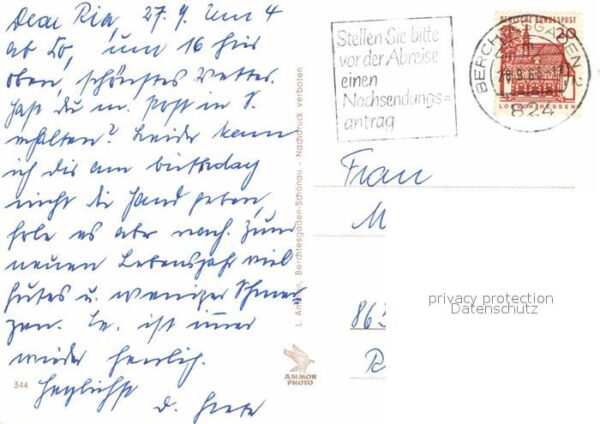 Dear Ria, 27.9. Um 4
ab Lo, um 16 hier
oben, schönstes Wetter.
Hast du m. Post in S.
erhalten? Leider kann
ich dir am birthday
nicht die Hand geben,
hole es aber nach. Zum
neuen Lebensjahr viel
Gutes u. weniger Schmer
zen. Es ist immer
wieder herrlich.
Herzlichst
d.
344
L. Ammon, Berchtesgaden-Schönau - Nachdruck verboten
AMMON
PHOTO
Stellen Sie bitte
vor der Abreise
einen
Nachsendungs=
antrag
BERCHTESGADEN
824
DEUTSCHE BUNDESPOST
20
LORSCH/HESSEN
Frau
M
863
privacy protection
Datenschutz